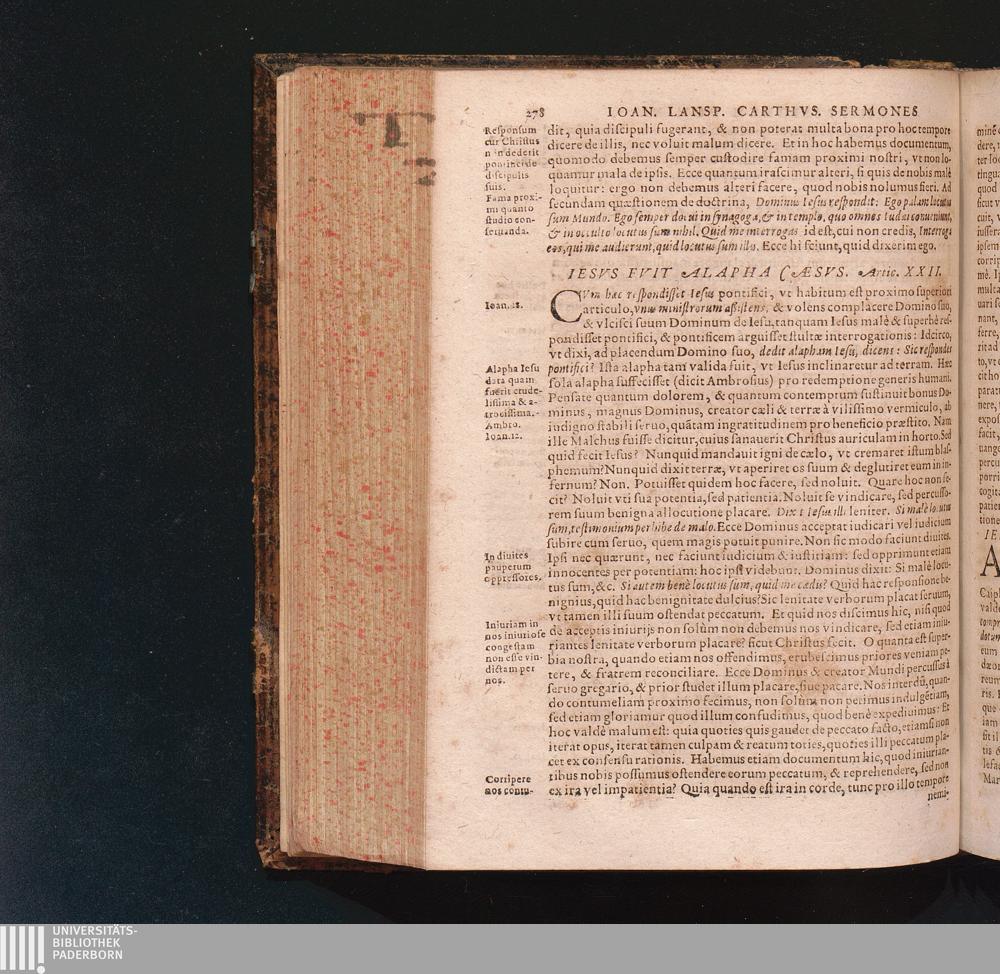 278 IOAN. LANSP. CARTHVS. SERMONES
dit, quia discipuli fugerant, & non poterat multa bona pro hoc tempore
dicere de illis, nec voluit malum dicere. Et in hoc habemus documentum,
quomodo debemus semper custodire famam proximi nostri, vt non lo-
quamur mala de ipsis. Ecce quantum irascimur alteri, si quis de nobis malè
loquitur: ergo non debemus alteri facere, quod nobis nolumus fieri. Ad
secundam quæstionem de doctrina, Dominus Iesus respondit: Ego palam locutus
sum Mundo. Ego semper docui in synagoga, & in templo, quo omnes Iudæi conueniunt,
& in occulto locutus sum nihil. Quid me interrogas, id est, cui non credis, Interroga
eos, qui me audierunt, quid locutus sum illis. Ecce hi sciunt, quid dixerim ego.
Responsum
cur Christus
non dederit
pontifici de
discipulis
suis.
Fama proxi-
mi quanto
studio con-
seruanda.
IESVS FVIT ALAPHA CÆSVS. Artic. XXII.
CVm hæc respondisset Iesus pontifici, vt habitum est proximo superiori
articulo, vnus ministrorum assistens, & volens complacere Domino suo,
& vlcisci suum Dominum de Iesu, tanquam Iesus malè & superbè res-
pondisset pontifici, & pontificem arguisset stultæ interrogationis: Idcirco,
vt dixi, ad placendum Domino suo, dedit alapham Iesu, dicens: Sic respondes
pontifici? Ista alapha tam valida fuit, vt Iesus inclinaretur ad terram. Hæc
sola alapha suffecisset (dicit Ambrosius) pro redemptione generis humani.
Pensate quantum dolorem, & quantum contemptum sustinuit bonus Do-
minus, magnus Dominus, creator cæli & terræ à vilissimo vermiculo, ab
indigno stabili seruo, quātam ingratitudinem pro beneficio præstito. Nam
ille Malchus fuisse dicitur, cuius sanauerit Christus auriculam in horto. Sed
quid fecit Iesus? Nunquid mandauit igni de cælo, vt cremaret istum blas-
phemum? Nunquid dixit terræ, vt aperiret os suum & deglutiret eum in in-
fernum? Non. Potuisset quidem hoc facere, sed noluit. Quare hoc non fe-
cit? Noluit vti sua potentia, sed patientia. Noluit se vindicare, sed percusso-
rem suum benigna allocutione placare. Dixit Iesus illi leniter. Si malè locutus
sum, testimonium perhibe de malo. Ecce Dominus acceptat iudicari vel iudicium
subire cum seruo, quem magis potuit punire. Non sic modo faciunt diuites.
Ipsi nec quærunt, nec faciunt iudicium & iustitiam: sed opprimunt etiam
innocentes per potentiam: hoc ipsi videbunt. Dominus dixit: Si malè locu-
tus sum, &c. Si autem benè locutus sum, quid me cædis? Quid hac responsione be-
nignius, quid hac benignitate dulcius? Sic lenitate verborum placat seruum,
vt tamen illi suum ostendat peccatum. Et quid nos discimus hic, nisi quod
de acceptis iniurijs non solùm non debemus nos vindicare, sed etiam iniu-
riantes lenitate verborum placare? sicut Christus fecit. O quanta est super-
bia nostra, quando etiam nos offendimus, erubescimus priores veniam pe-
tere, & fratrem reconciliare. Ecce Dominus & creator Mundi percussus à
seruo gregario, & prior studet illum placare, siue pacare. Nos interdū, quan-
do contumeliam proximo fecimus, non solùm non petimus indulgētiam,
sed etiam gloriamur quod illum confudimus, quod benè expediuimus: Et
hoc valdè malum est: quia quoties quis gaudet de peccato facto, etiamsi non
iterat opus, iterat tamen culpam & reatum toties, quoties illi peccatum pla-
cet ex consensu rationis. Habemus etiam documentum hic, quod iniurian-
tibus nobis possumus ostendere eorum peccatum, & reprehendere, sed non
ex ira vel impatientia? Quia quando est ira in corde, tunc pro illo tempore
nema-
Ioan. 18.
Alapha Iesu
data quam
fuerit crude-
lissima & a-
trocissima.
Ambro.
Ioan. 12.
In diuites
pauperum
oppressores.
Iniuriam in
nos iniuriose
congestam
non esse vin-
dictam per
nos.
Corripere
nos contu-
UNIVERSITÄTS-
BIBLIOTHEK
PADERBORN